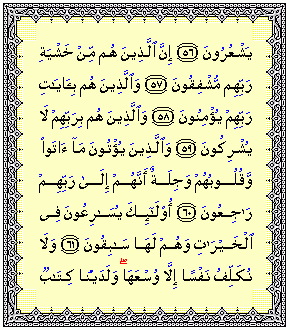 يَشْعُرُونَ ٥٦ إِنَّ ٱلَّذِينَ هُم مِّنْ خَشْيَةِ
رَبِّهِم مُّشْفِقُونَ ٥٧ وَٱلَّذِينَ هُم بِـَٔايَـٰتِ
رَبِّهِمْ يُؤْمِنُونَ ٥٨ وَٱلَّذِينَ هُم بِرَبِّهِمْ لَا
يُشْرِكُونَ ٥٩ وَٱلَّذِينَ يُؤْتُونَ مَآ ءَاتَوا۟
وَّقُلُوبُهُمْ وَجِلَةٌ أَنَّهُمْ إِلَىٰ رَبِّهِمْ
رَٰجِعُونَ ٦٠ أُو۟لَـٰٓئِكَ يُسَـٰرِعُونَ فِى
ٱلْخَيْرَٰتِ وَهُمْ لَهَا سَـٰبِقُونَ ٦١ وَلَا
نُكَلِّفُ نَفْسًا إِلَّا وُسْعَهَا ۖ وَلَدَيْنَا كِتَـٰبٌ